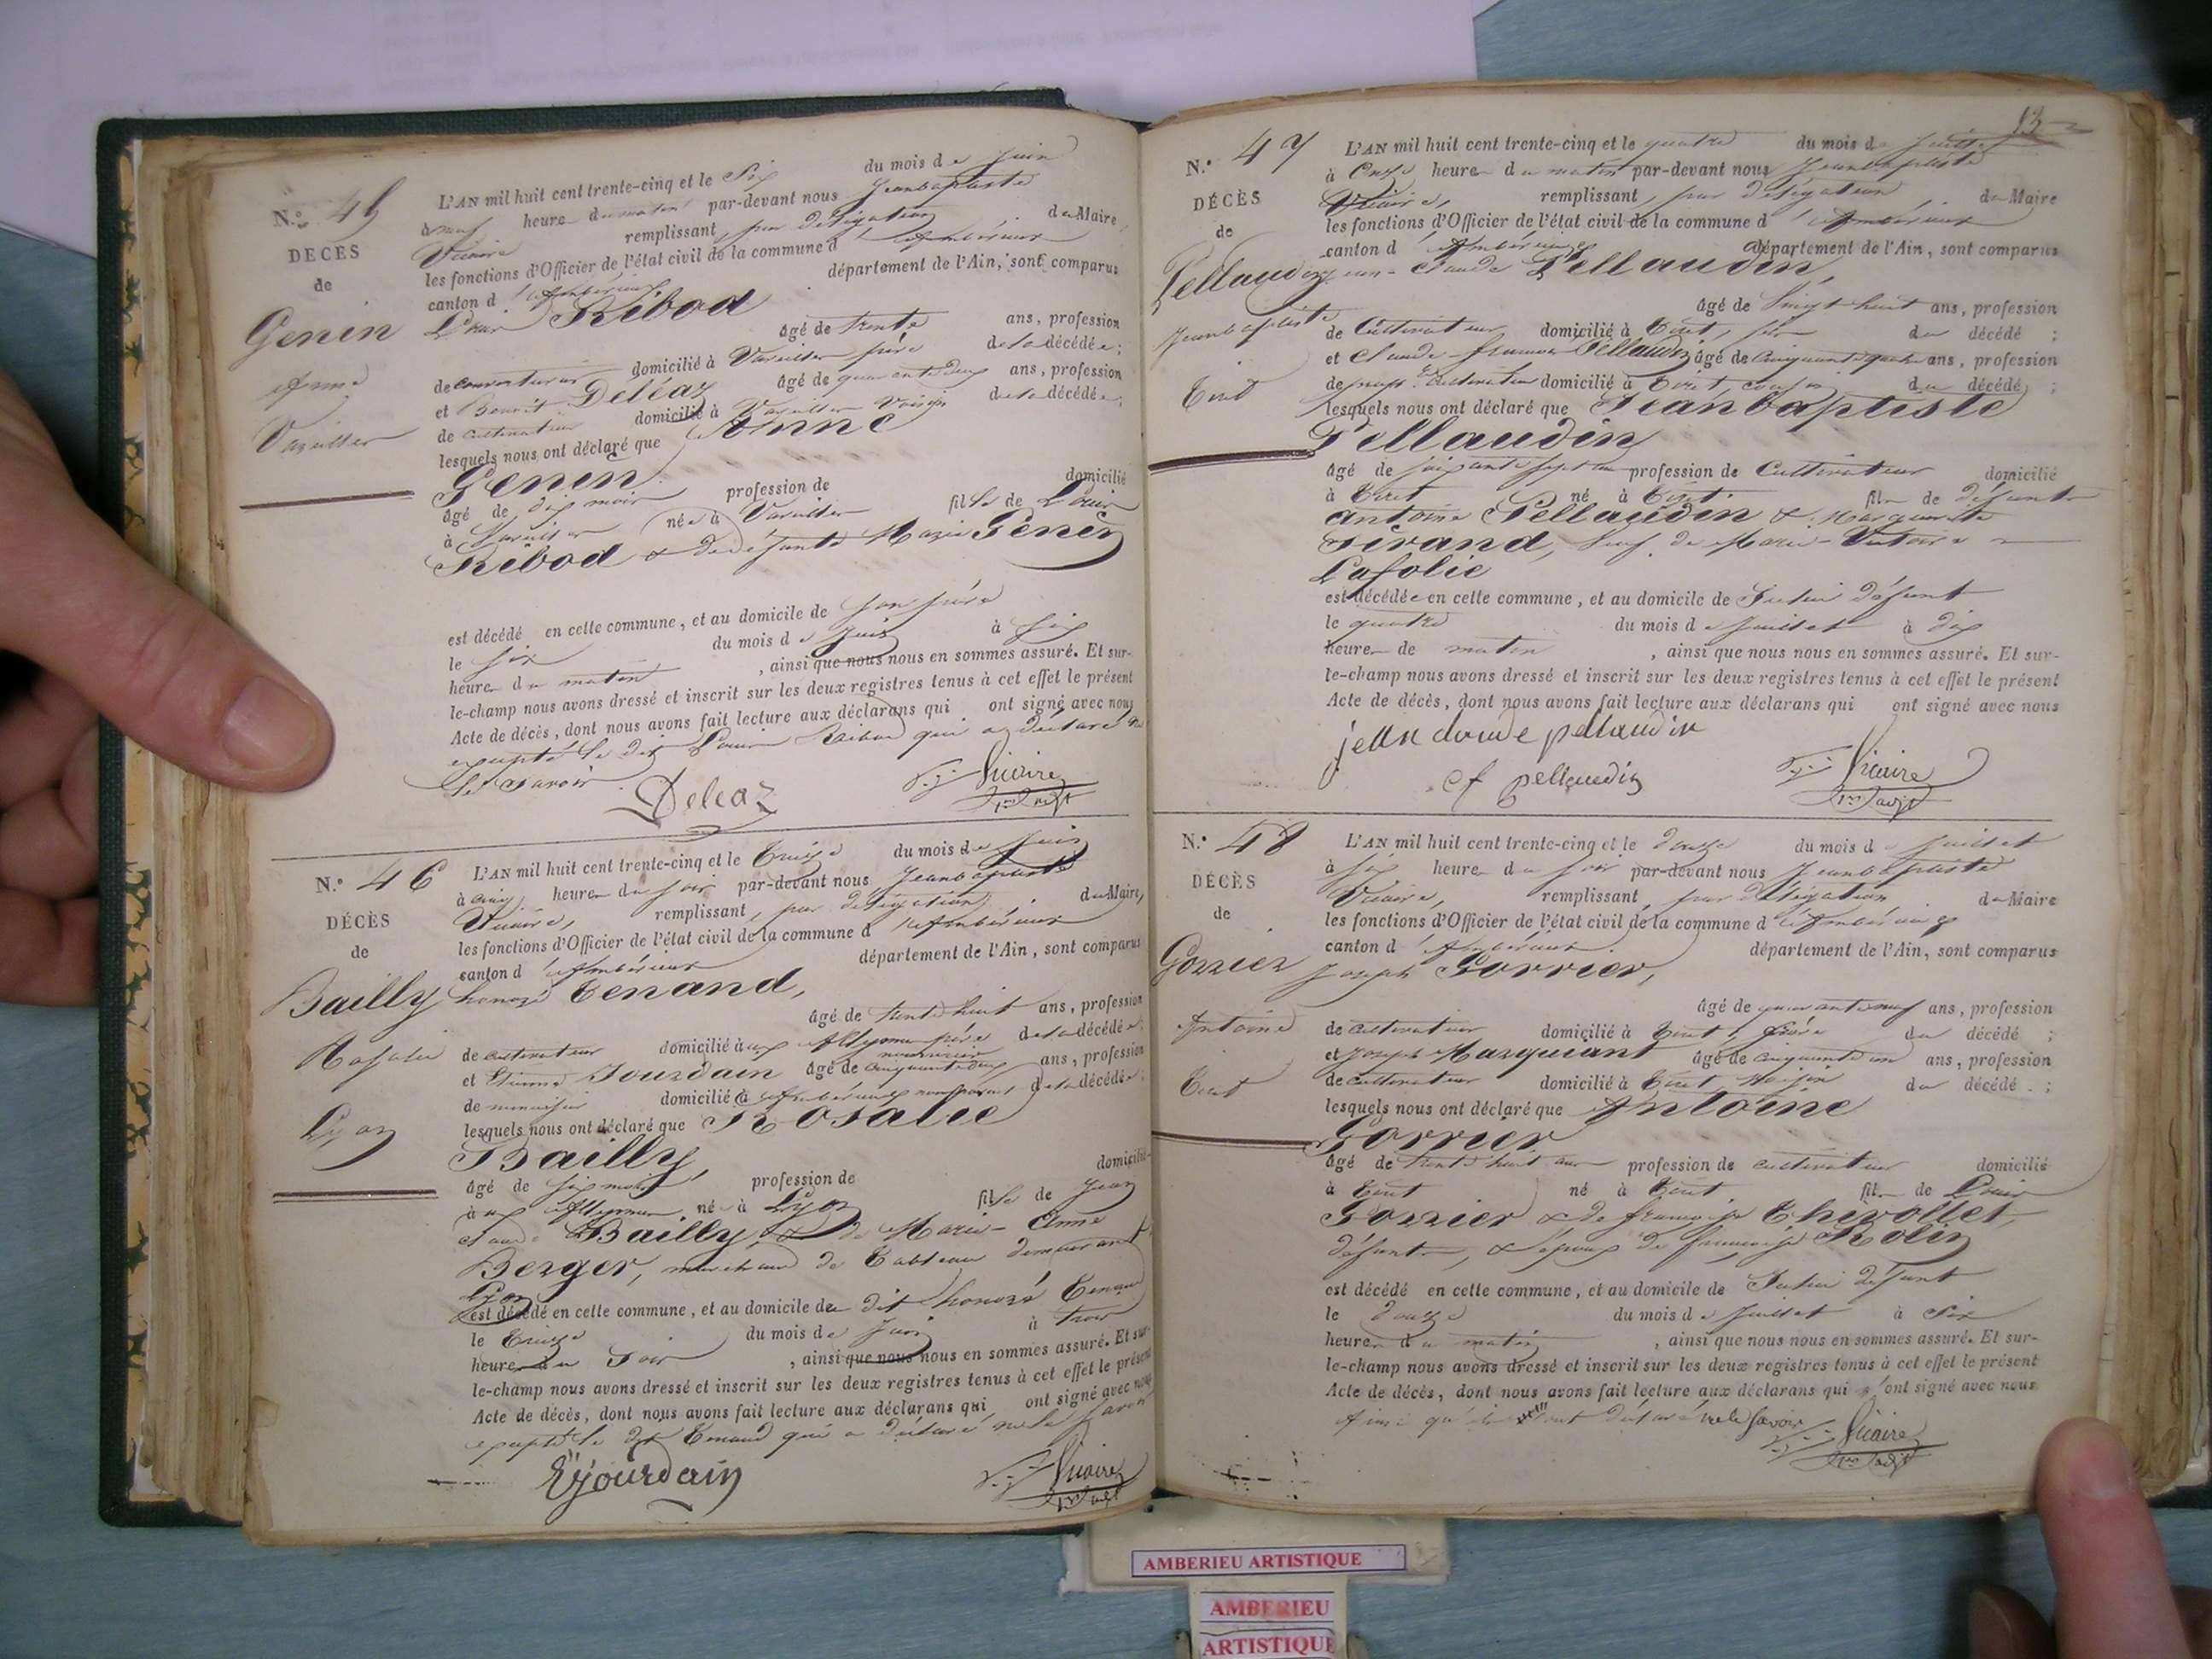 N.º 45
DÉCÈS
de
Genin
Anne
Vareilles
L'AN mil huit cent trente-cinq et le Six du mois de Juin
à neuf heures du matin par-devant nous Jeanbaptiste
Vicaire remplissant, par délégation du Maire,
les fonctions d'Officier de l'état civil de la commune d'Ambérieux
canton d'Ambérieux département de l'Ain, sont comparus
Louis Ribod
âgé de trente ans, profession
de domicilié à Vareilles père de la décédée;
et Benoit Deléaz âgé de quarante deux ans, profession
de cultivateur domicilié à Vareilles voisin de la décédée;
lesquels nous ont déclaré que Anne
Genin
âgé de dix mois profession de domicilié
à Vareilles née à Vareilles fille de Louis
Ribod & de défunte Marie Genin
est décédé en cette commune, et au domicile de son père
le six du mois de Juin à six
heures du matin, ainsi que nous nous en sommes assuré. Et sur-
le-champ nous avons dressé et inscrit sur les deux registres tenus à cet effet le présent
Acte de décès, dont nous avons fait lecture aux déclarans qui ont signé avec nous
excepté le dit Louis Ribod qui a déclaré ne
le savoir
Deleaz Vicaire
N.º 46
DÉCÈS
de
Bailly
Rosalie
Lyon
L'AN mil huit cent trente-cinq et le Treize du mois de Juin
à cinq heures du soir par-devant nous Jeanbaptiste
Vicaire, remplissant, par délégation du Maire,
les fonctions d'Officier de l'état civil de la commune d'Ambérieux
canton d'Ambérieux département de l'Ain, sont comparus
honoré Tenand,
âgé de trente huit ans, profession
de cultivateur domicilié aux Allymes père nourricier de la décédée;
et Etienne Jourdain âgé de cinquante deux ans, profession
de menuisier domicilié à Ambérieux non parent de la décédée;
lesquels nous ont déclaré que Rosalie
Bailly,
âgé de six mois profession de domicilié
aux Allymes né à Lyon fille de Jean
Claude Bailly, & de Marie-Anne
Berger, marchand de Tableaux demeurant
Lyon
est décédé en cette commune, et au domicile de dit honoré Tenand
le Treize du mois de Juin à trois
heures du Soir, ainsi que nous nous en sommes assuré. Et sur-
le-champ nous avons dressé et inscrit sur les deux registres tenus à cet effet le présent
Acte de décès, dont nous avons fait lecture aux déclarans qui ont signé avec nous
excepté le dit Tenand qui a déclaré ne le savoir
Ejourdain Vicaire
13
N.º 47
DÉCÈS
de
Pellaudin
Jeanbaptiste
Tiret
L'AN mil huit cent trente-cinq et le quatre du mois de Juillet
à Onze heures du matin par-devant nous Jeanbaptiste
Vicaire, remplissant, par délégation du Maire
les fonctions d'Officier de l'état civil de la commune d'Ambérieux
canton d'Ambérieux département de l'Ain, sont comparus
Jean-Claude Pellaudin,
âgé de Vingt huit ans, profession
de Cultivateur domicilié à Tiret, fils du décédé;
et Claude-françois Pellaudin âgé de cinquante quatre ans, profession
de cultivateur domicilié à Tiret, cousin du décédé;
lesquels nous ont déclaré que Jeanbaptiste
Pellaudin
âgé de soixante sept ans profession de Cultivateur domicilié
à Tiret né à Tiret fils de défunts
Antoine Pellaudin & Marguerite
Tirand, veuf de Marie-Victoire
Lafolie
est décédée en cette commune, et au domicile de Ludit défunt
le quatre du mois de Juillet à dix
heures de matin, ainsi que nous nous en sommes assuré. Et sur-
le-champ nous avons dressé et inscrit sur les deux registres tenus à cet effet le présent
Acte de décès, dont nous avons fait lecture aux déclarans qui ont signé avec nous
jean claude pellaudin
cf pellaudin Vicaire
N.º 48
DÉCÈS
de
Gorrier
Antoine
Tiret
L'AN mil huit cent trente-cinq et le douze du mois de Juillet
à six heures du soir par-devant nous Jeanbaptiste
Vicaire, remplissant, par délégation du Maire
les fonctions d'Officier de l'état civil de la commune d'Ambérieux
canton d'Ambérieux département de l'Ain, sont comparus
Joseph Gorrier,
âgé de quarante neuf ans, profession
de cultivateur domicilié à Tiret, frère du décédé;
et Joseph Marquiant âgé de cinquante un ans, profession
de cultivateur domicilié à Tiret Voisin du décédé;
lesquels nous ont déclaré que Antoine
Gorrier
âgé de trente huit ans profession de cultivateur domicilié
à Tiret né à Tiret fils de Louis
Gorrier & de françoise Chevollet,
défunts, & époux de françoise Rolin
est décédé en cette commune, et au domicile de Ludit défunt
le douze du mois de Juillet à Six
heures du matin, ainsi que nous nous en sommes assuré. Et sur-
le-champ nous avons dressé et inscrit sur les deux registres tenus à cet effet le présent
Acte de décès, dont nous avons fait lecture aux déclarans qui n'ont signé avec nous
Ainsi qu'ils ont déclaré ne le savoir Vicaire
AMBERIEU ARTISTIQUE
AMBERIEU
ARTISTIQUE